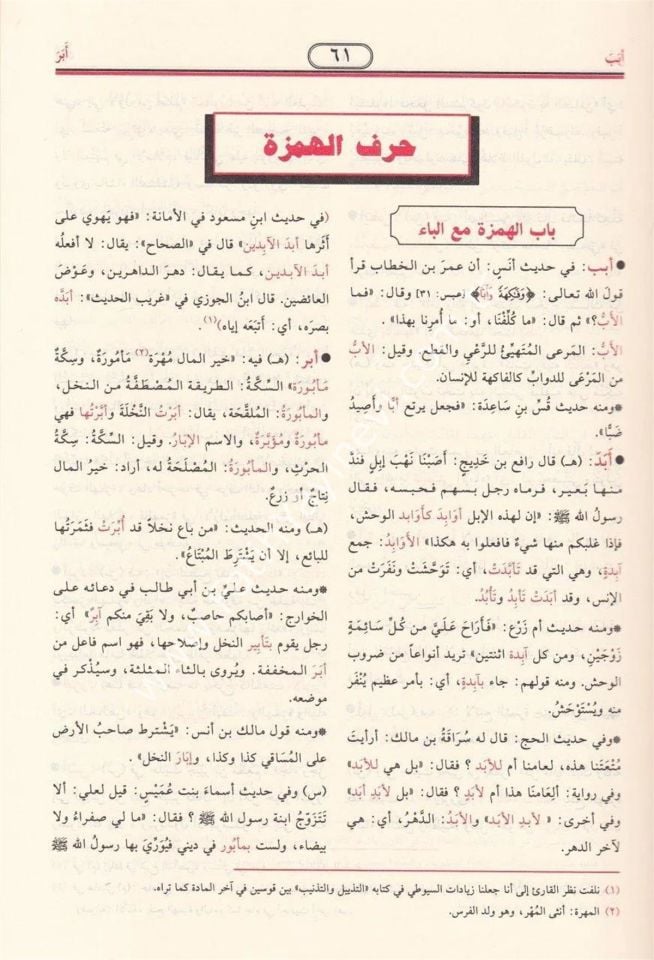 أبَبَ
٦١
أَبَرَ
حرف الهمزة
باب الهمزة مع الباء
● أبب: في حديث أنَس: أن عمرَ بن الخطاب قرأ
قولَ الله تعالى: ﴿وَفَكِهَةً وَأَبًّا﴾ [عبس: ٣١] وقال: «فما
الأَبُّ؟» ثم قال: «ما كُلِّفْنَا، أو: ما أُمِرنا بهذا».
الأَبُّ: المرعى المُتَهيِّئُ للرَّعْي والقطع. وقيل: الأَبُّ
من المَرْعَى للدوابِّ كالفاكهة للإنسان.
* ومنه حديث قُسّ بنِ سَاعِدَة: «فجعل يرتع أبًّا وأصِيدُ
ضَبًّا».
● أَبَدَ: (هـ) قال رافع بن خَدِيج: أصَبْنَا نَهْبَ إبِلٍ فندَّ
منها بَعير، فرماه رجل بسهم فحبسه، فقال
رسولُ الله ﷺ: «إن لهذه الإبل أوَابِدَ كأوَابِد الوحش،
فإذا غلبكم منها شيءٌ فافعلوا به هكذا» الأَوَابِدُ: جمع
آبِدةٍ، وهي التي قد تأبَّدَتْ، أي: تَوَحَّشَتْ ونَفَرَتْ من
الإنس، وقد أبَدَتْ تَأبِدُ وتَأبُدُ.
* ومنه حديث أم زَرْع: «فَأَرَاحَ عَلَيَّ من كُلِّ سَائِمَةٍ
زَوْجَيْنِ، ومن كلِّ آبِدة اثنتين» تريد أنواعاً من ضروب
الوحش. ومنه قولهم: جاء بآبِدةٍ، أي: بأمر عظيم يُنْفَر
منه ويُسْتَوْحَشُ.
* وفي حديث الحج: قال له سُرَاقَةُ بن مالك: أرأيتَ
مُتْعَتَنا هذه، ألعامنا أم للأبد؟ فقال: «بل هي للأبد»
وفي رواية: ألِعَامنا هذا أم لأبَدٍ؟ فقال: «بل لأبَدِ أبَدٍ»
وفي أخرى: «لأبدِ الأبَد» والأبَدُ: الدَّهْرُ، أي: هي
لآخر الدهر.
(في حديث ابن مسعود في الأمانة: «فهو يَهوي على
أثَرِها أبدَ الآبِدين» قال في «الصحاح»: يقال: لا أفعلُه
أبدَ الآبدين، كما يقال: دهرَ الداهرين، وعَوْضَ
العائضين. قال ابنُ الجوزي في «غريب الحديث»: أبَدَّه
بصرَه، أي: أتبَعَه إياه)(١).
● أبر: (هـ) فيه: «خير المال مُهْرَة(٢) مَأمُورَةٌ، وسِكَّةٌ
مَأبُورَة» السِّكَّةُ: الطريقة المُصْطَفَّةُ من النخل،
والمأبُورَةُ: المُلقَّحة، يقال: أبَرْتُ النَّخْلَةَ وأبَّرْتُها فهي
مأبورَةٌ ومُؤبَّرَةٌ، والاسم الإبَارُ. وقيل: السِّكَّةُ: سِكَّةُ
الحرْثِ، والمأبُورَةُ: المُصْلَحَةُ له، أراد: خيرُ المال
نِتاجٌ أو زرعٌ.
(هـ) ومنه الحديث: «من باع نخلاً قد أُبِّرَتْ فثَمَرَتُها
للبائع، إلا أن يَشْتَرِطَ المُبْتَاعُ».
* ومنه حديث عليِّ بن أبي طالب في دعائه على
الخوارج: «أصابكم حاصِبٌ، ولا بَقِيَ منكم آبِرٌ» أي:
رجل يقوم بتَأبِير النخل وإصلاحها، فهو اسم فاعل من
أبَرَ المخففة. ويُروى بالثاء المثلثة، وسيُذكر في
موضعه.
* ومنه قول مالك بن أنس: «يَشْترط صاحبُ الأرض
على المُسَاقي كذا وكذا، وإبَارَ النخل».
(س) وفي حديث أسماءَ بنت عُمَيْس: قيل لعلي: ألا
تَتَزَوَّجُ ابنة رسول الله ﷺ؟ فقال: «ما لي صفراءُ ولا
بيضاء، ولست بمأبُورٍ في ديني فيُوَرِّيَ بها رسولُ الله ﷺ
(١) نلفت نظر القارئ إلى أنا جعلنا زيادات السيوطي في كتابه «التذييل والتذنيب» بين قوسين في آخر المادة كما تراه.
(٢) المهرة: أنثى المُهْر، وهو ولد الفرس.